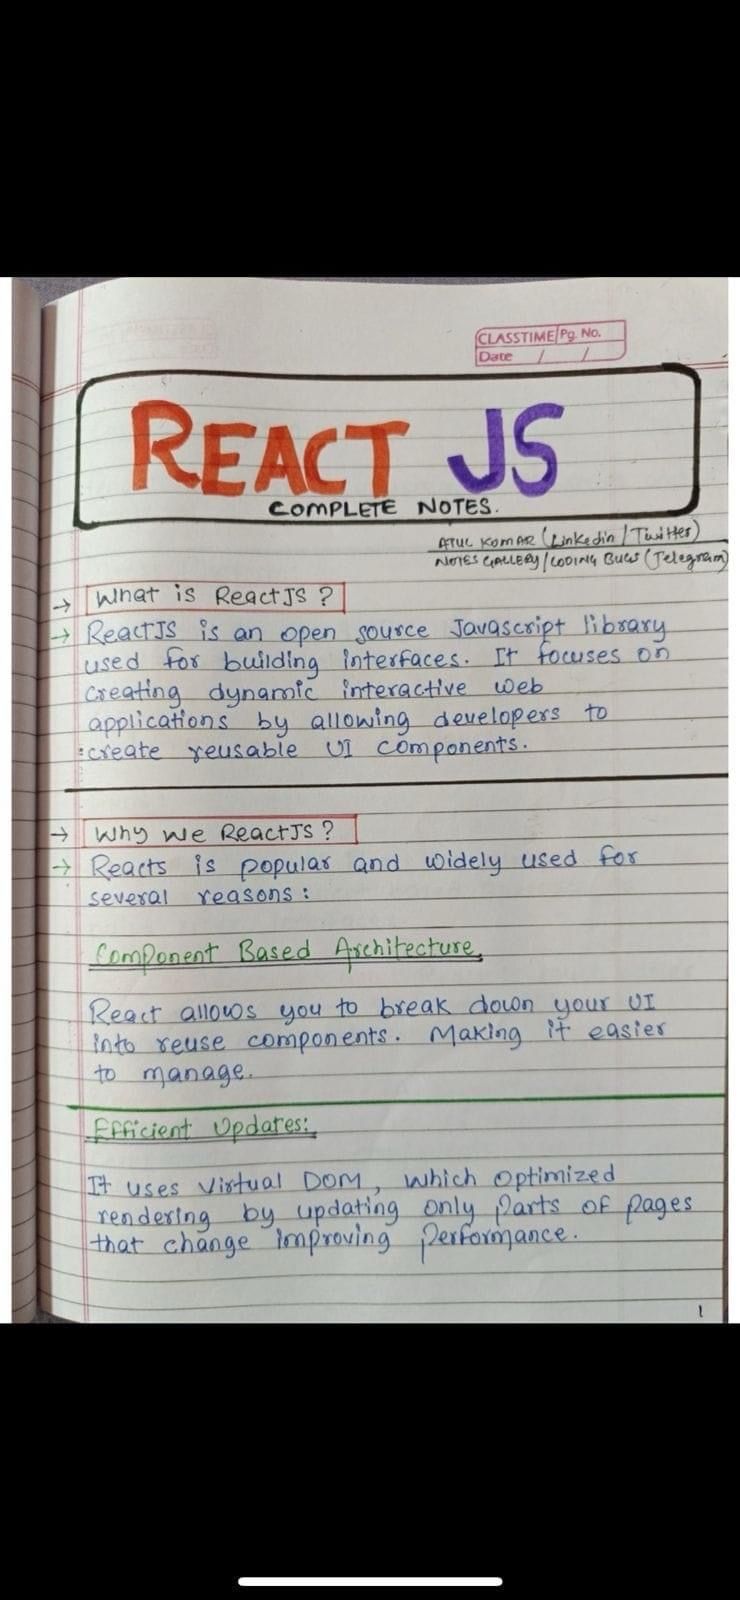 CLASSTIME Pg. No.
Date / /
REACT JS
COMPLETE NOTES.
ATUL KUMAR (Linkedin / Twitter)
NOTES GALLERY / CODING BUGS (Telegram)
→ What is ReactJS ?
→ ReactJS is an open source Javascript library
used for building interfaces. It focuses on
creating dynamic interactive web
applications by allowing developers to
create reusable UI components.
→ Why we ReactJS ?
→ Reacts is popular and widely used for
several reasons :
Component Based Architecture,
React allows you to break down your UI
into reuse components. Making it easier
to manage.
Efficient Updates:
It uses Virtual DOM, which Optimized
rendering by updating only parts of pages
that change improving performance.
1